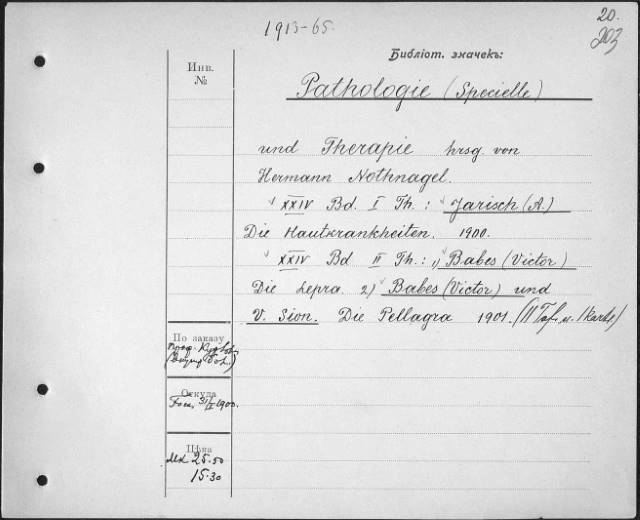 1913-65.
20.
203
Библіот. значекъ:
Инв.
№
Pathologie (Specielle)
und Therapie hrsg. von
Hermann Nothnagel.
XXIV Bd. I Th.: Jarisch (A.)
Die Hautkrankheiten. 1900.
XXIV Bd II Th.: 1) Babes (Victor)
Die Lepra. 2) Babes (Victor) und
V. Sion. Die Pellagra 1901. (11 Taf. u. 1 Karte)
По заказу
Проф.
Откуда
1900.
Цѣна
Mk 25.50
15.30